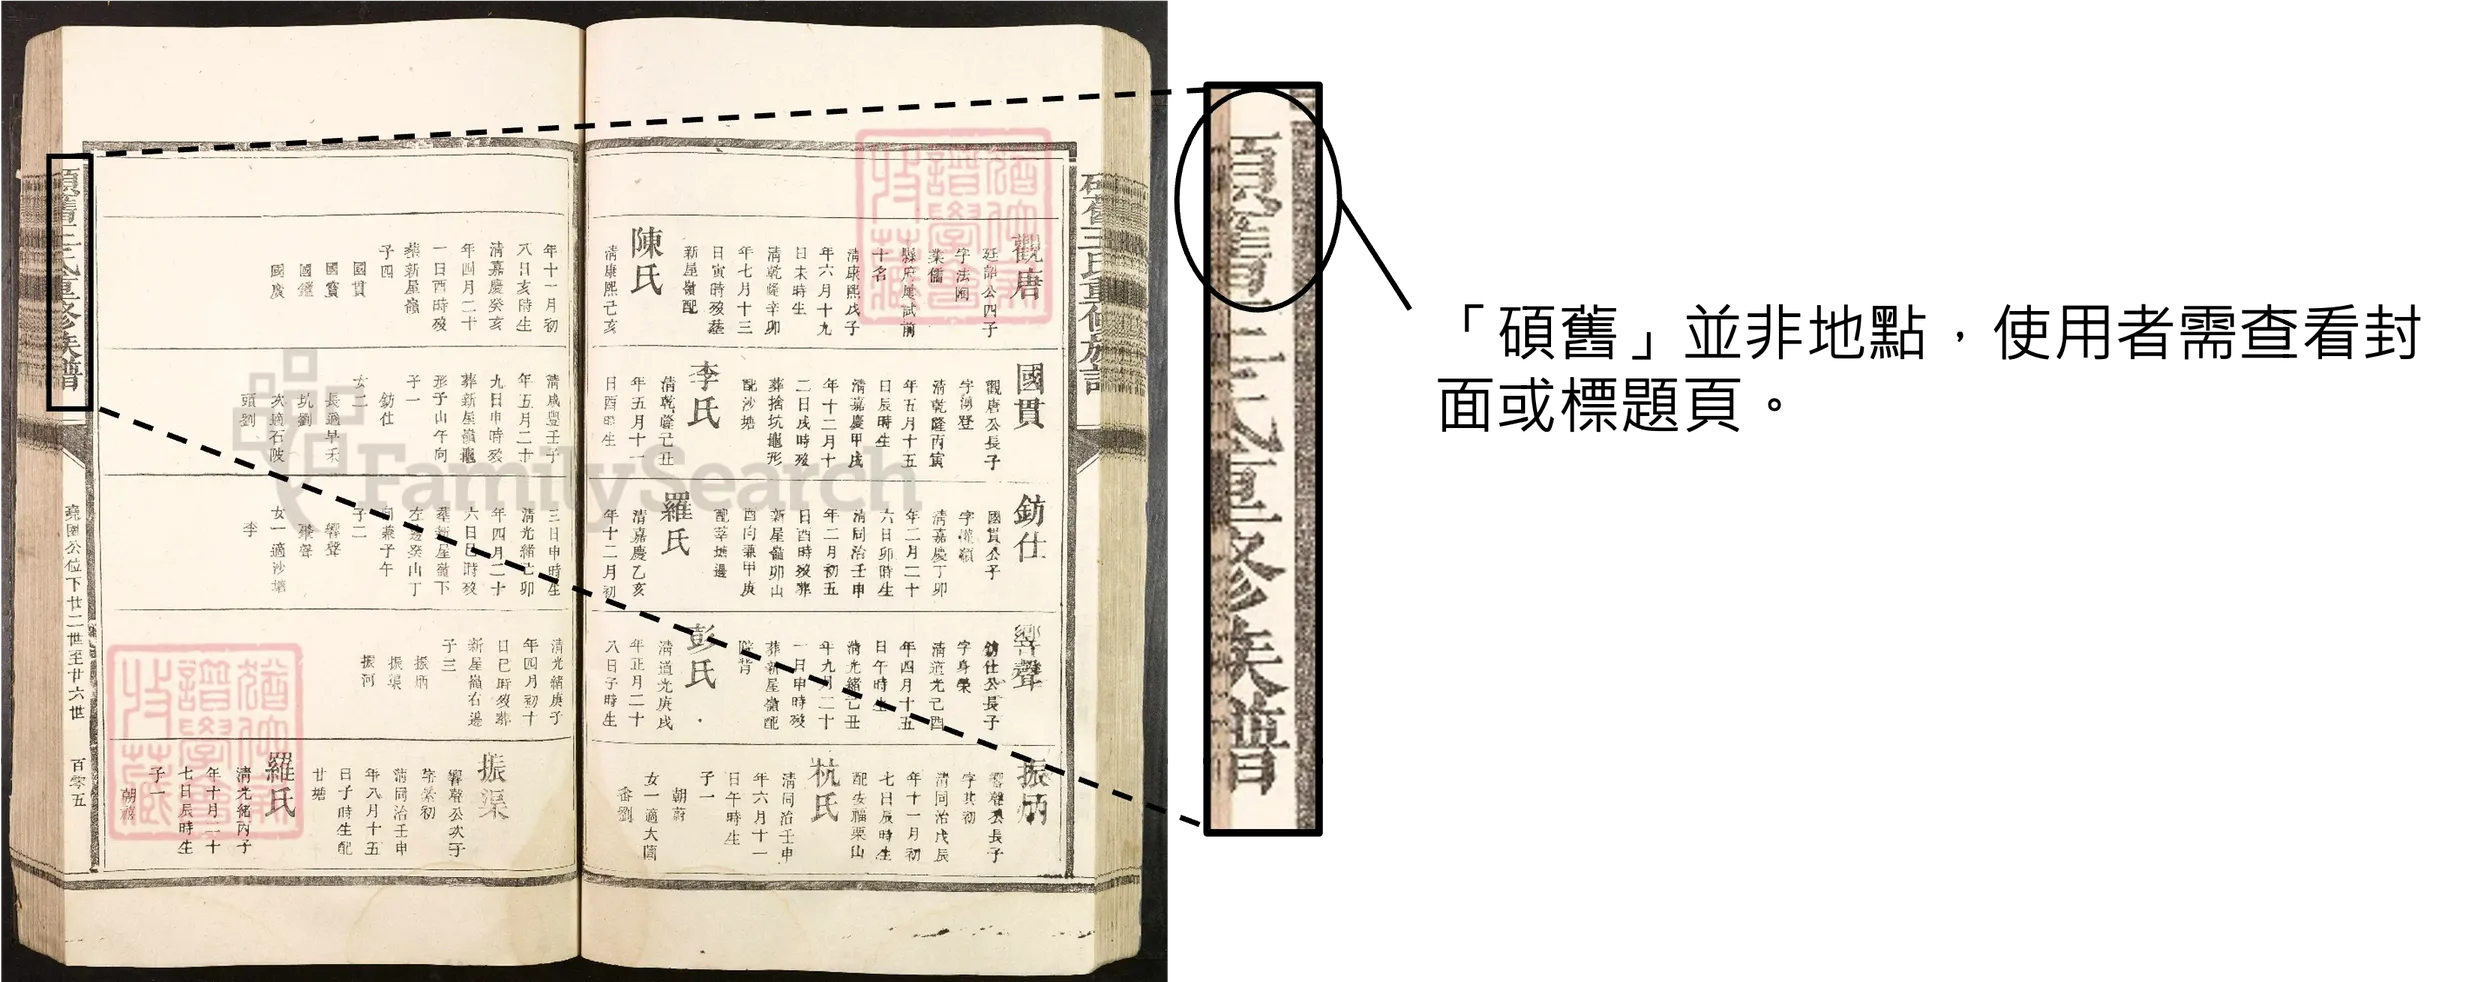 碩舊王氏重修族譜
觀唐
廷詔公四子
業儒
縣府屢試前
十名
清康熙戊子
年六月十九
日未時生
清乾隆辛卯
年七月十三
日寅時歿葬
新屋嶺配
陳氏
清康熙己亥
年十一月初
八日亥時生
清嘉慶癸亥
年四月二十
一日酉時歿
葬新屋嶺
子四
國貫
國寶
國鑑
國廣
國貫
觀唐公長子
字湧登
清乾隆丙寅
年五月十五
日辰時生
清嘉慶甲戌
年十二月十
二日戌時歿
葬捨坑龜形
配沙塘
李氏
清乾隆己丑
年五月十一
日酉時生
清咸豐壬子
年五月二十
九日申時歿
葬新屋嶺龜
形子山午向
子一
鈁仕
女二
長適早禾
坑劉
次適石陂
頭劉
鈁仕
國貫公子
清嘉慶丁卯
年二月二十
六日卯時生
清同治壬申
年二月初五
日酉時歿葬
新屋嶺卯山
酉向兼甲庚
配莘塘邊
羅氏
清嘉慶乙亥
年十二月初
三日申時生
清光緒己卯
年四月二十
六日巳時歿
葬新屋嶺下
左邊癸山丁
向兼子午
子二
響聲
女一適沙塘
李
響聲
鈁仕公長子
字身榮
清道光己酉
年四月十五
日午時生
清光緒己丑
年九月二十
一日申時歿
葬新屋嶺配
彭氏
清道光庚戌
年正月二十
八日子時生
清光緒庚子
年四月初十
日巳時歿葬
新屋嶺右邊
子三
振炳
振渠
振河
振炳
響聲公長子
字其初
清同治戊辰
年十一月初
七日辰時生
配安福栗山
杭氏
清同治壬申
年六月十一
日午時生
子一
朝蔚
女一適大茴
番劉
振渠
響聲公次子
清同治壬申
年八月十五
日子時生配
廿塘
羅氏
清光緒丙子
年十月二十
七日辰時生
子一
朝禧
碩舊王氏重修族譜
堯國公位下廿二世至廿六世
百零五
FamilySearch
碩舊王氏重修族譜
「碩舊」並非地點，使用者需查看封
面或標題頁。